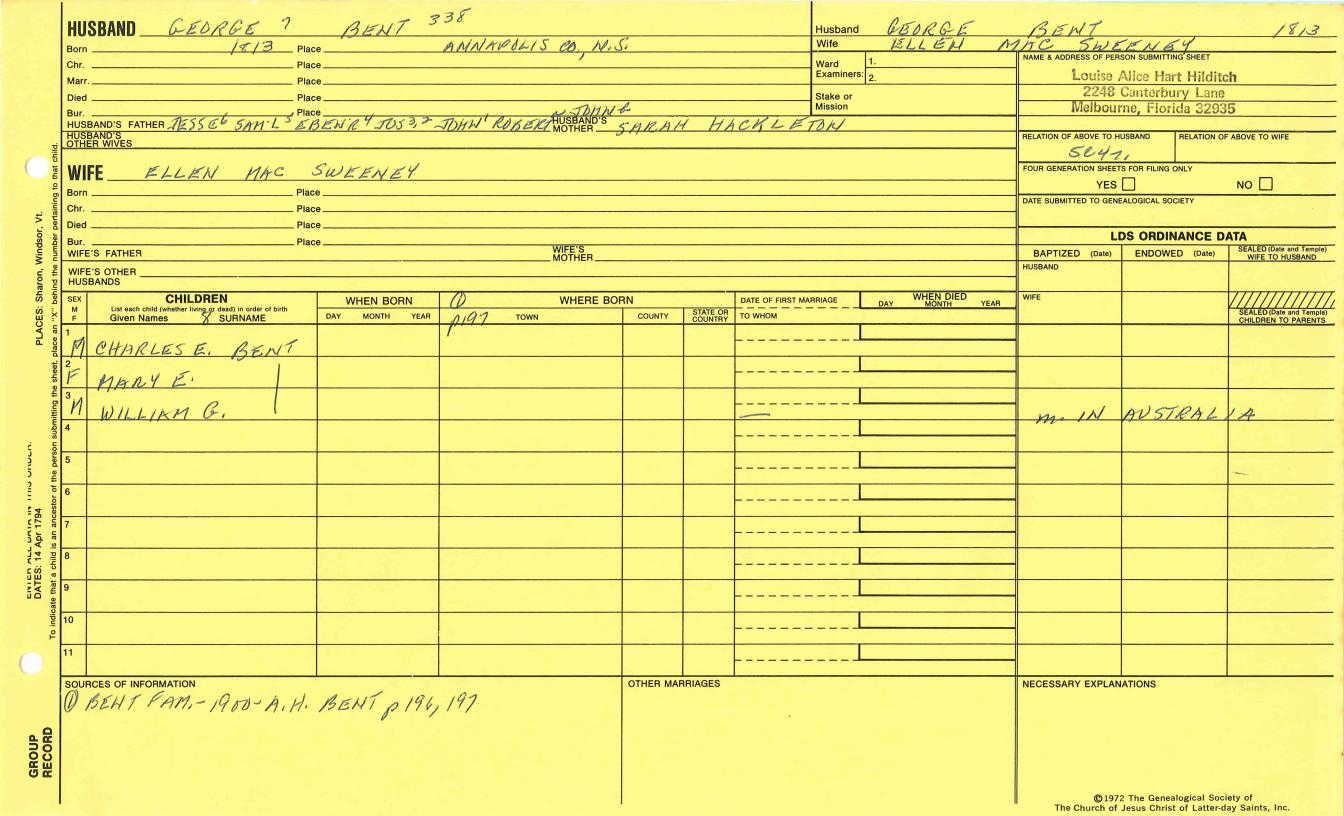 HUSBAND GEORGE 7 BENT 338
Born 1813 Place ANNAPOLIS CO, N.S.
Chr. Place
Marr. Place
Died Place
Bur. Place
HUSBAND'S FATHER JESSE6 SAM'L5 EBEN'R4 JOS3,2 JOHN1 ROBERT JOHN HUSBAND'S MOTHER SARAH HACKLETON
HUSBAND'S OTHER WIVES
WIFE ELLEN MAC SWEENEY
Born Place
Chr. Place
Died Place
Bur. Place
WIFE'S FATHER WIFE'S MOTHER
WIFE'S OTHER HUSBANDS
Husband GEORGE BENT 1813
Wife ELLEN MAC SWEENEY
Ward Examiners: 1.
2.
Stake or Mission
NAME & ADDRESS OF PERSON SUBMITTING SHEET
Louise Alice Hart Hilditch
2248 Canterbury Lane
Melbourne, Florida 32935
RELATION OF ABOVE TO HUSBAND RELATION OF ABOVE TO WIFE
5C4r.
FOUR GENERATION SHEETS FOR FILING ONLY
YES NO
DATE SUBMITTED TO GENEALOGICAL SOCIETY
LDS ORDINANCE DATA
BAPTIZED (Date) ENDOWED (Date) SEALED (Date and Temple) WIFE TO HUSBAND
HUSBAND
WIFE
SEALED (Date and Temple) CHILDREN TO PARENTS
SEX M F
CHILDREN
List each child (whether living or dead) in order of birth
Given Names X SURNAME
WHEN BORN
DAY MONTH YEAR
① p197
WHERE BORN
TOWN COUNTY STATE OR COUNTRY
DATE OF FIRST MARRIAGE
TO WHOM
WHEN DIED
DAY MONTH YEAR
1 M CHARLES E. BENT
2 F MARY E. |
3 M WILLIAM G. — m. IN AUSTRALIA
4
5
6
7
8
9
10
11
SOURCES OF INFORMATION
① BENT FAM.-1900-A.H. BENT p196, 197
OTHER MARRIAGES
NECESSARY EXPLANATIONS
©1972 The Genealogical Society of
The Church of Jesus Christ of Latter-day Saints, Inc.
PLACES: Sharon, Windsor, Vt.
To indicate that a child is an ancestor of the person submitting the sheet, place an "X" behind the number pertaining to that child.
ENTER ALL DATA IN THIS ORDER:
DATES: 14 Apr 1794
GROUP RECORD